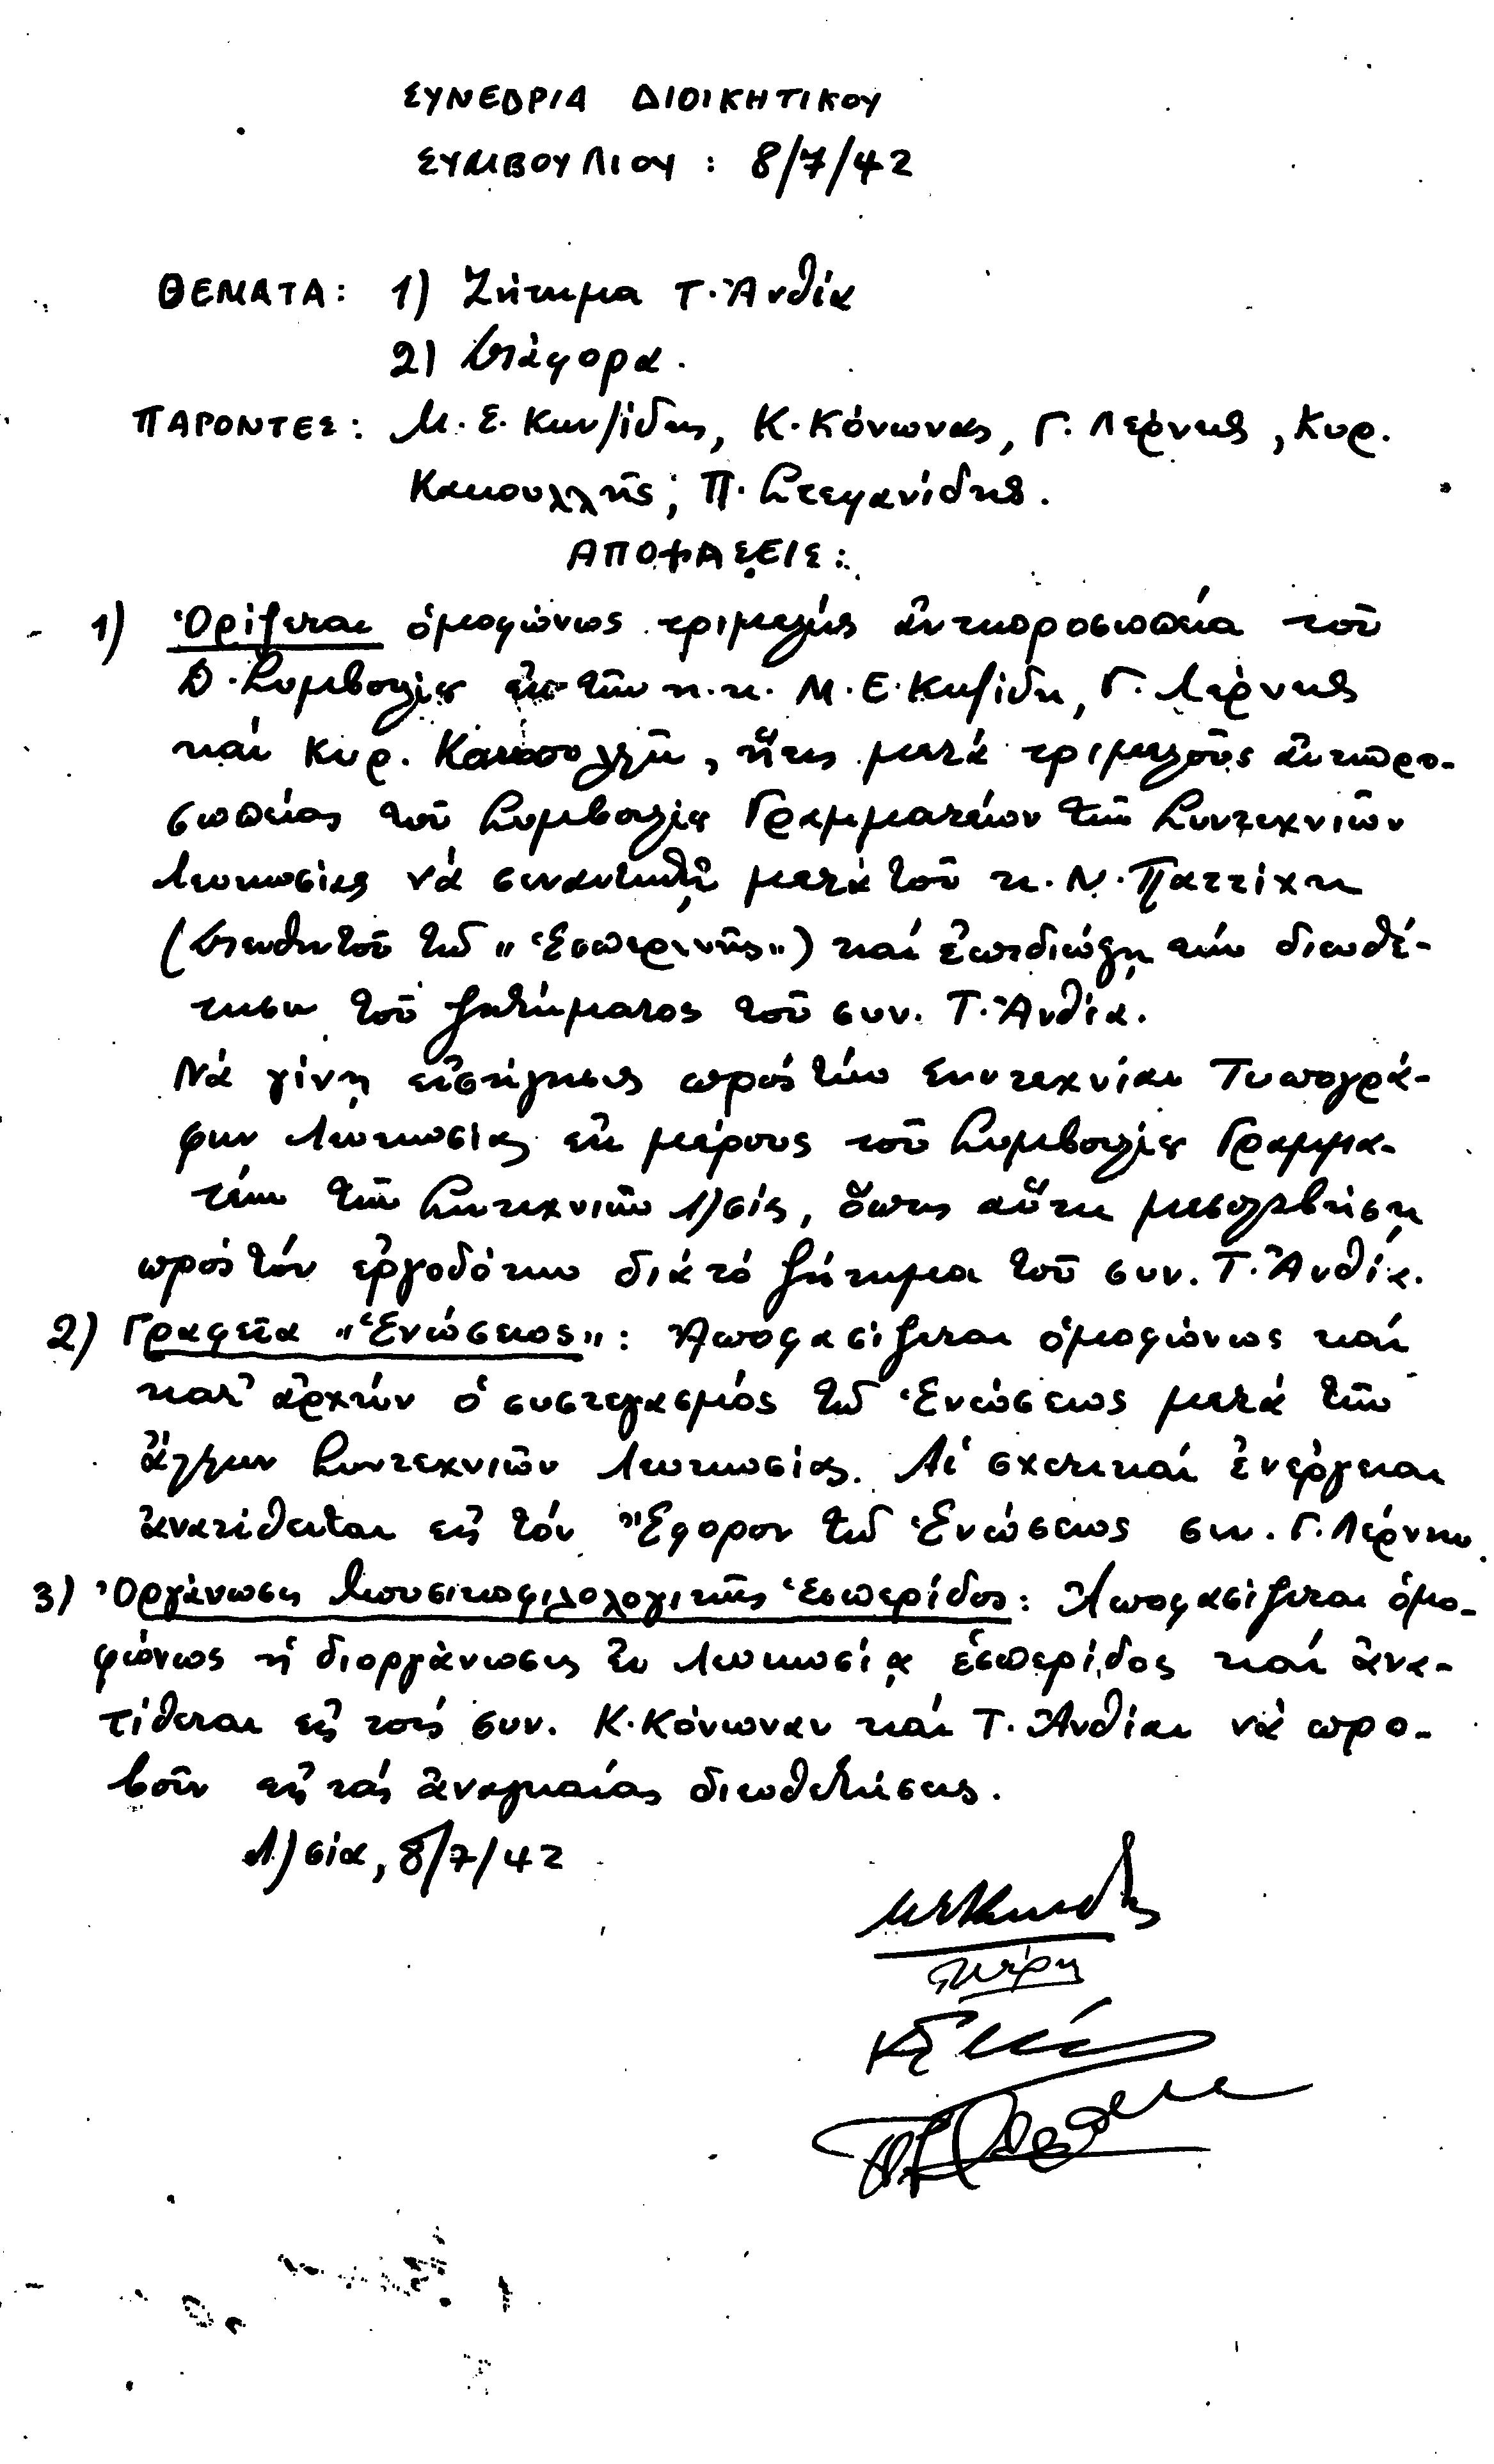 ΣΥΝΕΔΡΙΑ ΔΙΟΙΚΗΤΙΚΟΥ
ΣΥΜΒΟΥΛΙΟΥ : 8/7/42
ΘΕΜΑΤΑ: 1) Ζήτημα Τ. Ἀνθία
2) Διάφορα.
ΠΑΡΟΝΤΕΣ: Μ. Ε. Κων/ίδης, Κ. Κόνωνας, Γ. Λέρνης, Κυρ.
Κακουλλῆς, Π. Στεφανίδης.
ΑΠΟΦΑΣΕΙΣ:
1) Ὁρίζεται ὁμοφώνως τριμελής ἀντιπροσωπεία τοῦ
Δ. Συμβουλίου ἐκ τῶν κ.κ. Μ. Ε. Κω/ίδη, Γ. Λέρνης
καί Κυρ. Κακουλλῆ, ἥτις μετά τριμελοῦς ἀντιπρο-
σωπείας τοῦ Συμβουλίου Γραμματέων τῶν Συντεχνιῶν
Λευκωσίας νά συναντηθῇ μετά τοῦ κ. Ν. Παττίχη
(Διευθυντοῦ τῆς "Ἑσπερινῆς") καί ἐπιδιώξῃ τήν διευθέ-
τησιν τοῦ ζητήματος τοῦ συν. Τ. Ἀνθία.
Νά γίνῃ εἰσήγησις πρός τήν Συντεχνίαν Τυπογρά-
φων Λευκωσίας ἐκ μέρους τοῦ Συμβουλίου Γραμμα-
τέων τῶν Συντεχνιῶν Λ/σίας, ὅπως αὕτη μεσολαβήσῃ
πρός τόν ἐργοδότην διά τό ζήτημα τοῦ συν. Τ. Ἀνθία.
2) Γραφεῖα "Ἑνώσεως": Ἀποφασίζεται ὁμοφώνως καί
κατ' ἀρχήν ὁ συστεγασμός τῆς Ἑνώσεως μετά τῶν
ἄλλων Συντεχνιῶν Λευκωσίας. Αἱ σχετικαί ἐνέργειαι
ἀνατίθενται εἰς τόν Ἔφορον τῆς Ἑνώσεως συν. Γ. Λέρνην.
3) Ὀργάνωσις Μουσικοφιλολογικῆς Ἑσπερίδος: Ἀποφασίζεται ὁμο-
φώνως ἡ διοργάνωσις ἐν Λευκωσίᾳ ἑσπερίδος καί ἀνα-
τίθεται εἰς τούς συν. Κ. Κόνωναν καί Τ. Ἀνθίαν νά προ-
βοῦν εἰς τάς ἀναγκαίας διευθετήσεις.
Λ/σία, 8/7/42